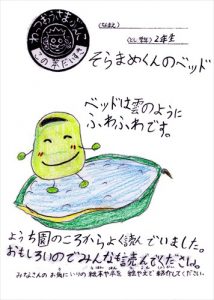 (なまえ)
(がくねん) 2年生
この本だいすき
そらまめくんのベッド
ベッドは雲のように
ふわふわです。
ようち園のころからよく読んでいました。
おもしろいのでみんなも読んでください。
みなさんの お気にいりの 絵本や本を 絵や文で 紹介してください。